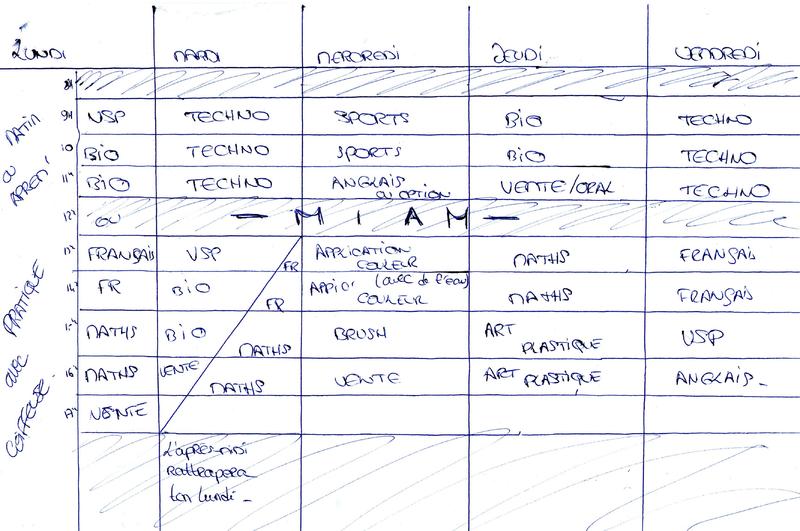 LUNDI MARDI MERCREDI JEUDI VENDREDI
8H
9H VSP TECHNO SPORTS BiO TECHNO
10 BiO TECHNO SPORTS BiO TECHNO
11H BiO TECHNO ANGLAIS ou OPTION VENTE/ORAL TECHNO
12H ou — M I A M —
13H FRANÇAIS VSP FR APPLICATION COULEUR MATHS FRANÇAIS
14H FR BiO FR APPLI° (avec de l'eau) COULEUR MATHS FRANÇAIS
15H MATHS BiO MATHS BRUSH ART PLASTIQUE VSP
16H MATHS VENTE MATHS VENTE ART PLASTIQUE ANGLAIS_
17H VENTE
L'APRÈS-MIDI
RATTRAPERA
ton lundi_
MATIN
OU
APREM'
PRATIQUE
avec
COIFFEUSE.